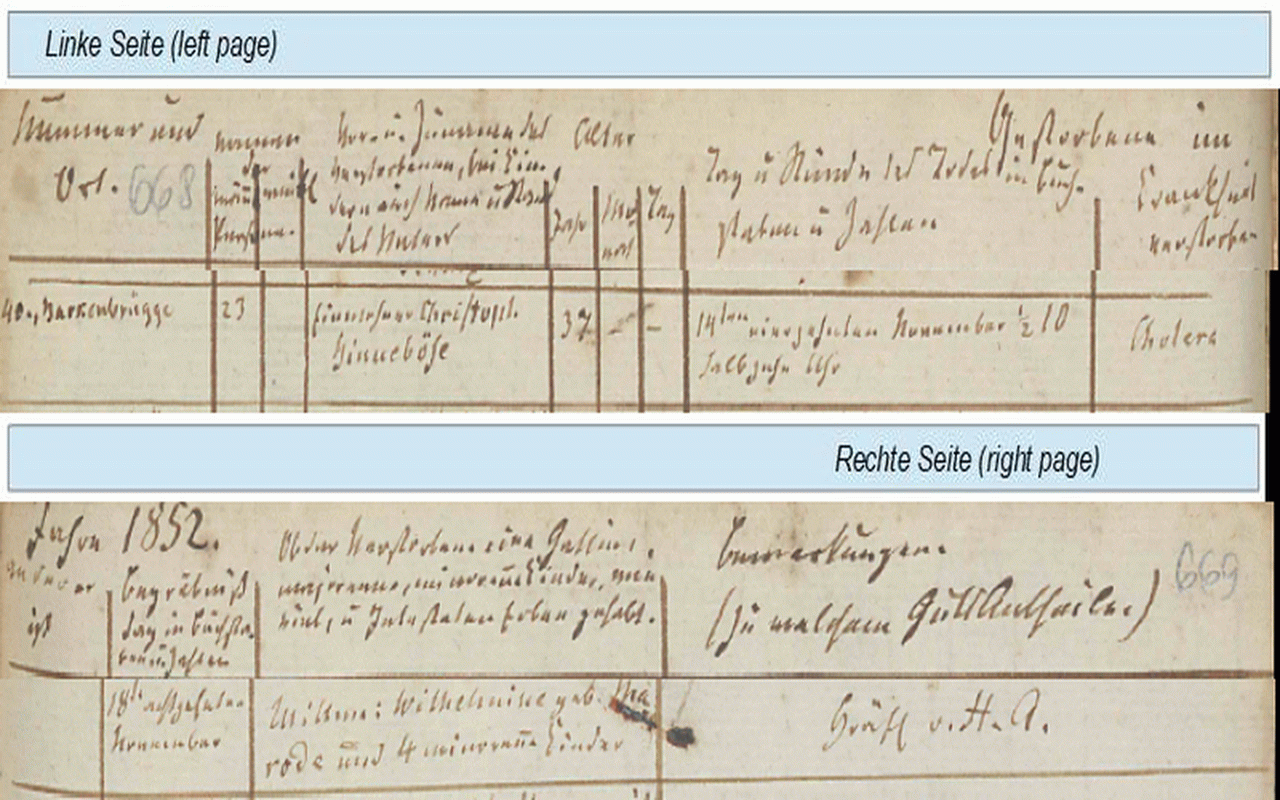 Linke Seite (left page)
Nummer und
Ort. 668
Namen
der
männl. weibl.
Personen.
Vor- u. Zuname des
Verstorbenen, bei Kin-
dern auch Name u Stand
des Vaters
Alter
Jahr
Mo
nat
Tag
Gestorbene im
Tag u Stunde des Todes in Buch-
staben u Zahlen
Krankheit
verstorben
40., Harkenbrügge
23
Einwohner Christoph
Hinneböse
37 - -
14ten vierzehnten November ½ 10
halbzehn Uhr
Cholera
Rechte Seite (right page)
Jahre 1852.
ist
Begräbniß
Tag in Buchsta-
ben u Zahlen
Ob der Verstorbene eine Gattin,
majorenne, minorenne Kinder, wie
viel, u Intestaten Erben gehabt.
Bemerkungen.
(zu welchem Gutsantheile.)
669
18t achtzehnten
November
Wittwe: Wilhelmine geb. Ma
rode und 4 minorenne Kinder
Gräfl v. H. A.